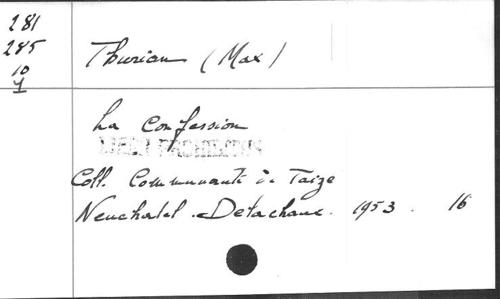 281
285
10
1
Thurian (Max)
La Confession
Coll. Communauté de Taize
Neuchatel. Delachaux. 1953. 16